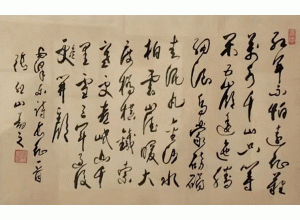 紅軍不怕遠征難
萬水千山只等
閒五嶺逶迤騰
細浪烏蒙磅礴
走泥丸金沙水
拍雲崖暖大
渡橋橫鐵索
寒更喜岷山千
里雪三軍過後
盡開顏
毛澤東詩長征一首